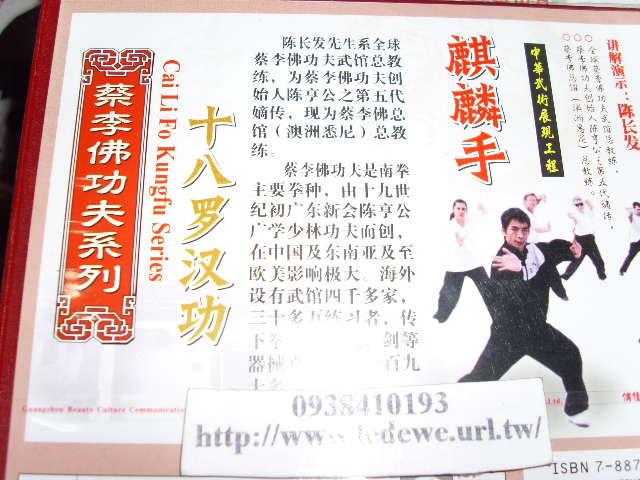 蔡李佛功夫系列
Cai Li Fo Kungfu Series
十八罗汉功
陈长发先生系全球
蔡李佛功夫武馆总教
练，为蔡李佛功夫创
始人陈亨公之第五代
嫡传，现为蔡李佛总
馆（澳洲悉尼）总教
练。
蔡李佛功夫是南拳
主要拳种，由十九世
纪初广东新会陈亨公
广学少林功夫而创，
在中国及东南亚及至
欧美影响极大。海外
设有武馆四千多家，
三十多万练习者，传
下拳
剑等
器械
百九
十多
麒麟手
中華武術展現工程
讲解演示：陈长发
○全球蔡李佛功夫武馆总教练，
○蔡李佛功夫创始人陈亨公之第五代嫡传，
○蔡李佛总馆（澳洲悉尼）总教练。
Guangzhou Beauty Culture Communication
0938410193
http://www.
dewe.url.tw/
ISBN 7-887